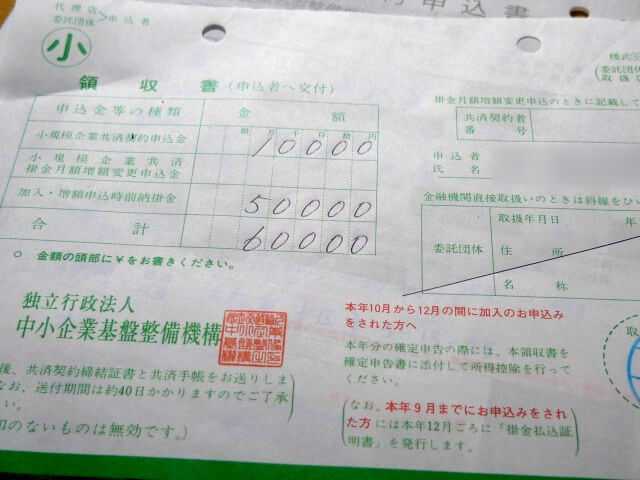 行申込書
代理店
委託団体>申込者
小
領収書(申込者へ交付)
申込金等の種類 金額
億 千 百 十 万 千 百 拾 円
小規模企業共済契約申込金 10000
小規模企業共済
掛金月額増額変更申込金
加入・増額申込時前納掛金 50000
合計 60000
○ 金額の頭部に¥をお書きください。
独立行政法人
中小企業基盤整備機構
後、共済契約締結証書と共済手帳をお送りしま
なお、送付期間は約40日かかりますのでご了承
い。
印のないものは無効です。)
株式
(委託団体
掛金月額増額変更申込のときに記載して
共済契約者
番号
申込者
氏名
金融機関直接取扱いのときは斜線をひい
取扱年月日 年
委託団体 住所
名称
本年10月から12月の間に加入のお申込み
をされた方へ
本年分の確定申告の際には、本領収書を
確定申告書に添付して所得控除を行って
ください。
(なお、本年9月までにお申込みをされ
た方には本年12月ごろに「掛金払込証
明書」を発行します。)
取